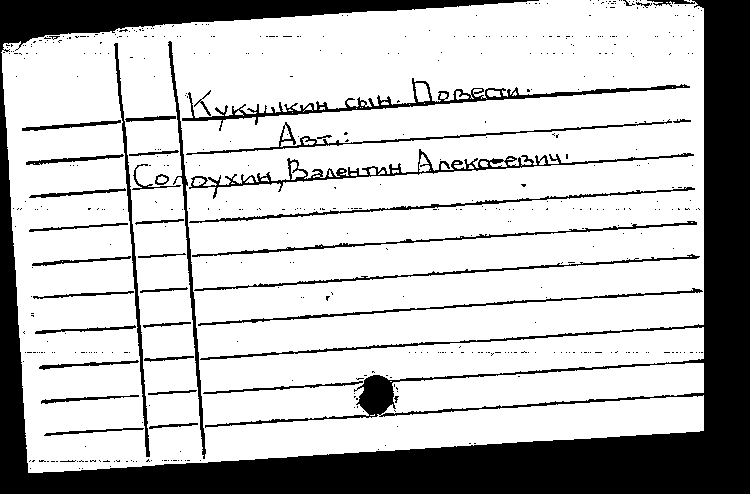 Кукушкин сын. Повести.
Авт.:
Солоухин, Валентин Алексеевич.